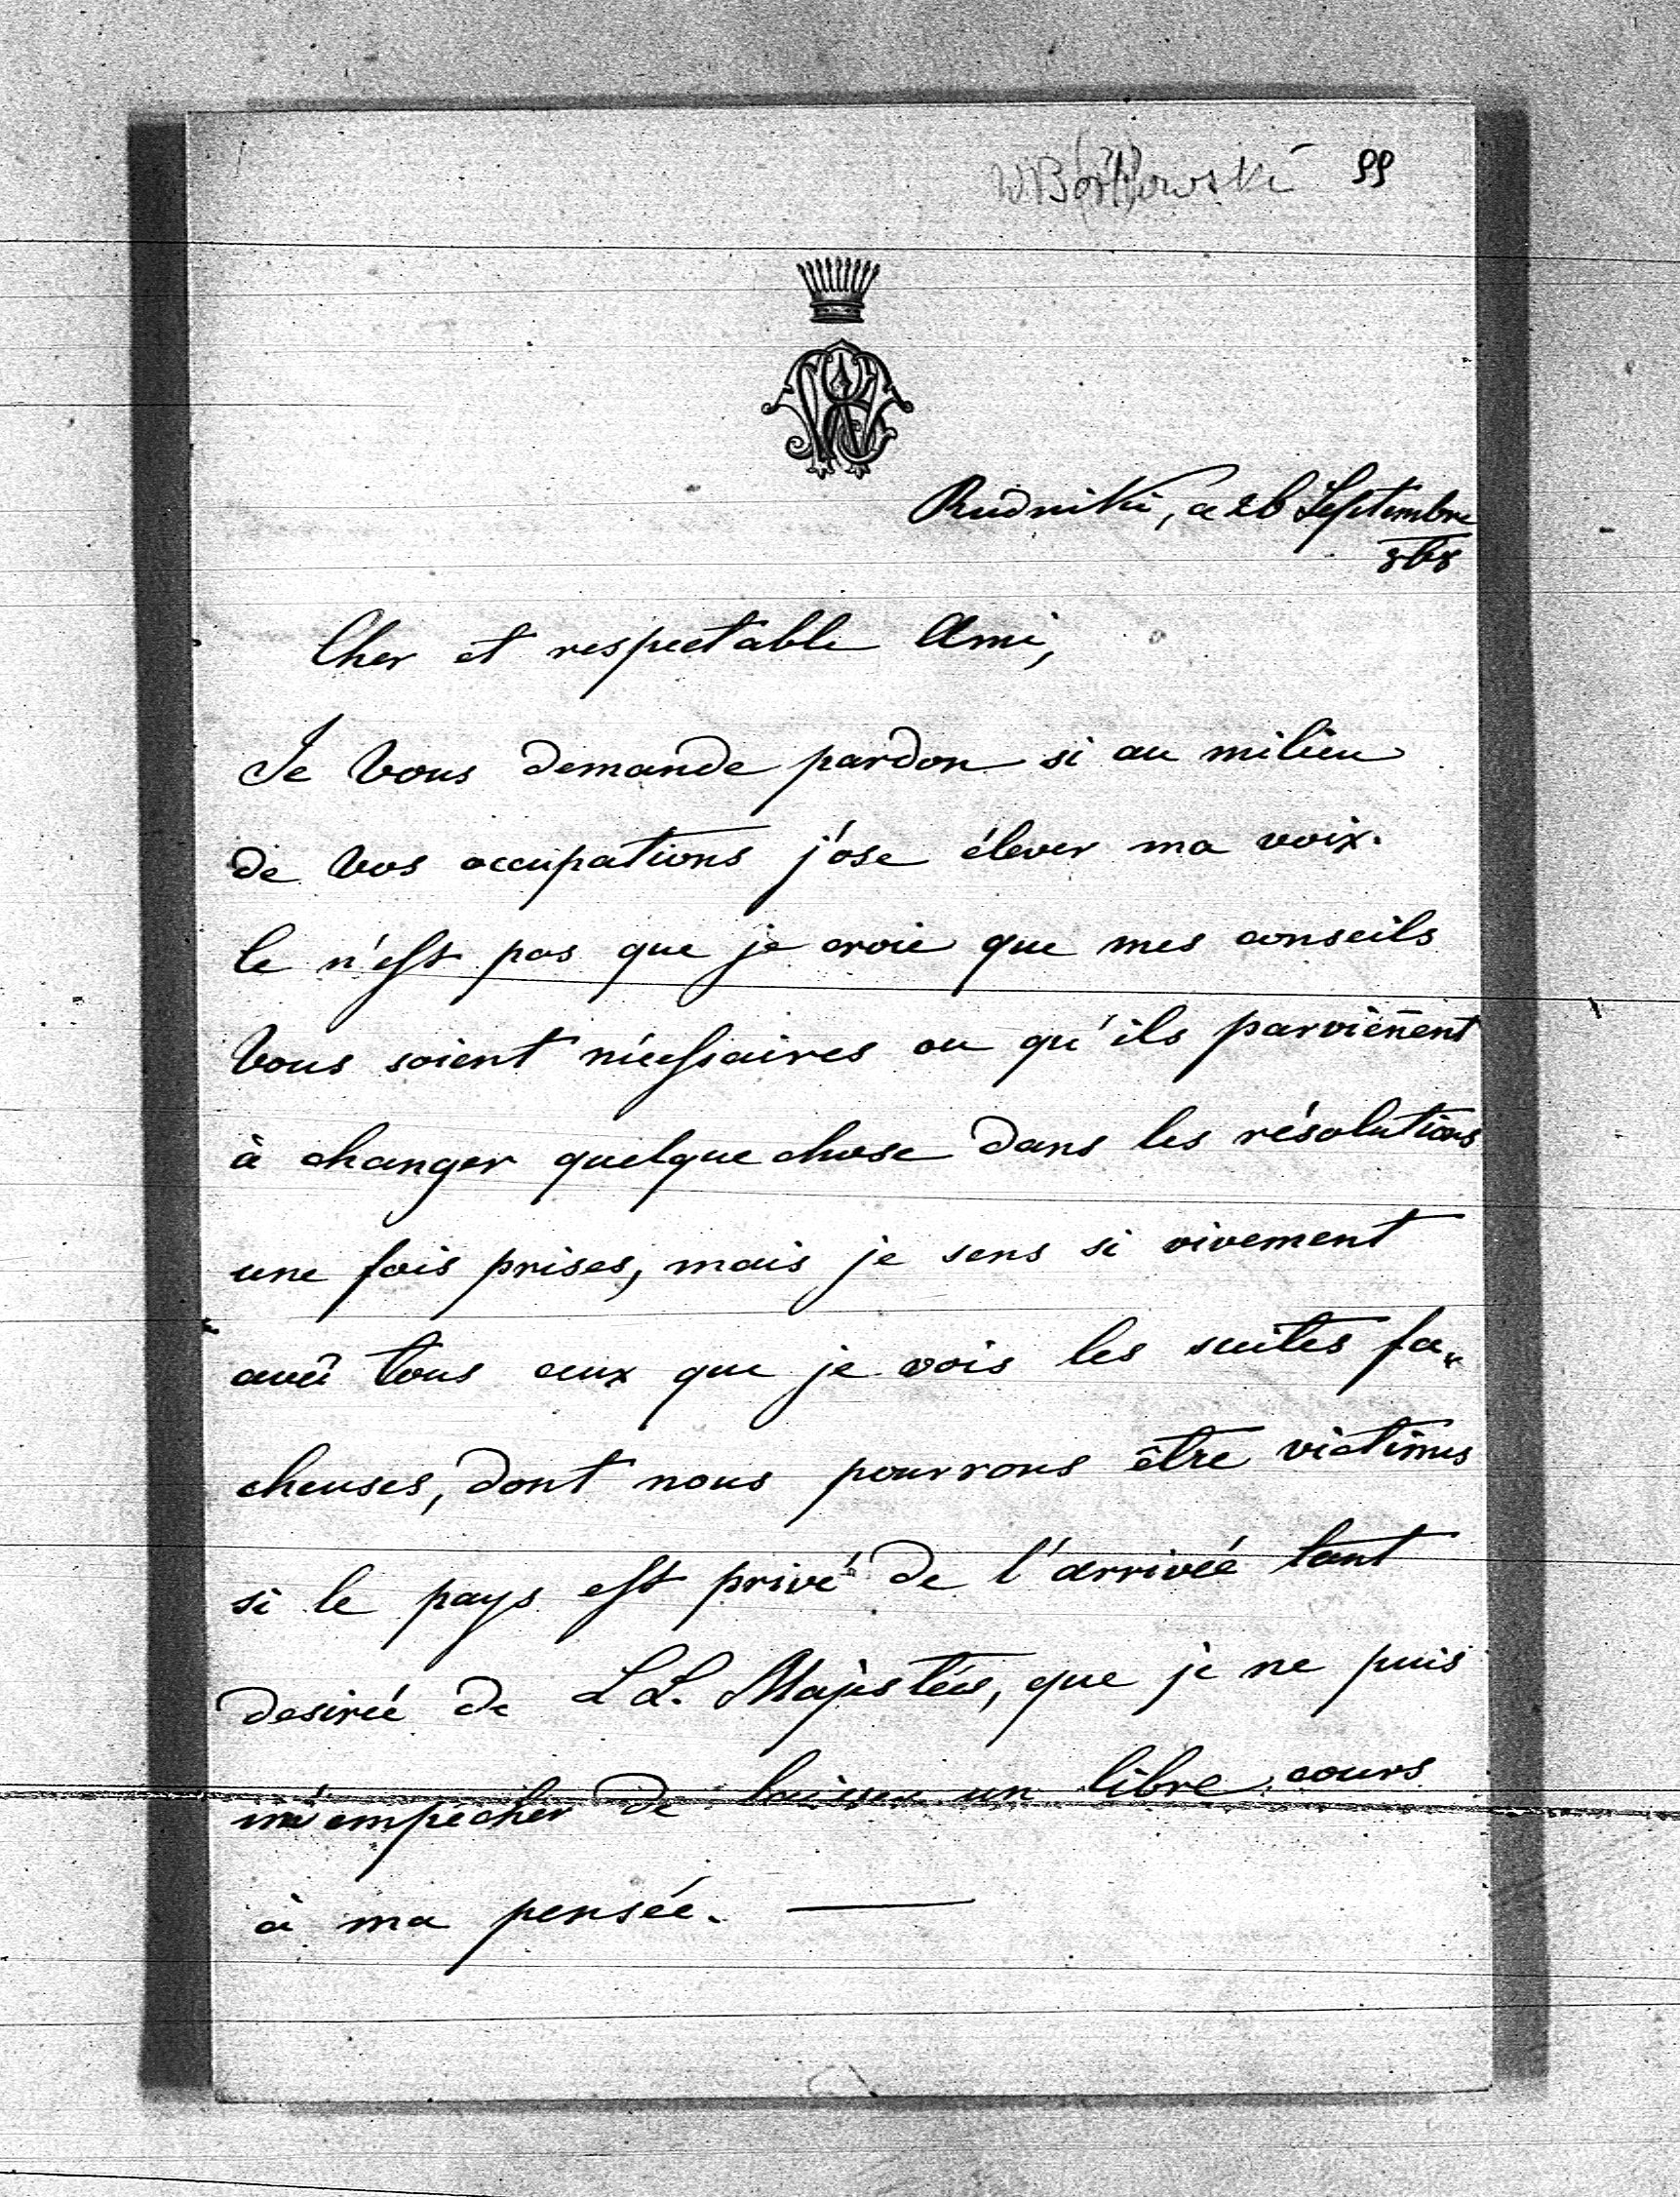 99
Rudniki, a 26 Septembre
868
Cher et respectable Ami,
Je Vous demande pardon si au milieu
de Vos occupations j'ose élever ma voix.
Ce n'est pas que je croie que mes conseils
Vous soient nécessaires ou qu'ils parvien̄ent
à changer quelque chose dans les résolutions
une fois prises, mais je sens si vivement
avec tous ceux que je vois les suites fa„
cheuses, dont nous pourrons être victimes
si le pays est privé de l'arrivée tant
desirée de LL. Majestées, que je ne puis
m'empecher de laisser un libre cours
à ma pensée. —